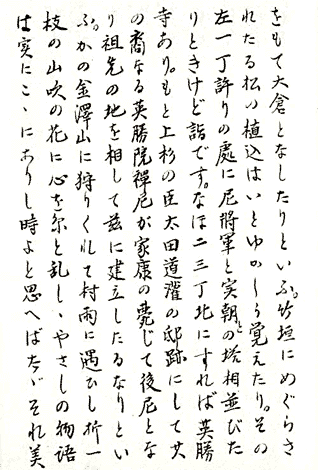 をもて大倉となしたりといふ。竹垣にめぐらさ
れたる松の植込はいとゆかしう覚えたり。その
左一丁許りの處に尼將軍と実朝の塔相並びた
りときけど詣でず。なほ二三丁北にすれば英勝
寺あり。もと上杉の臣太田道灌の邸跡にして其
の裔なる英勝院禪尼が家康の薨じて後尼とな
り祖先の地を相して茲に建立したるなりとい
ふ。かの金澤山に狩りくれて村雨に遇ひし折一
枝の山吹の花に心を糸と乱しゝやさしの物語
は実にこゝにありし時よと思へばたゞそれ美